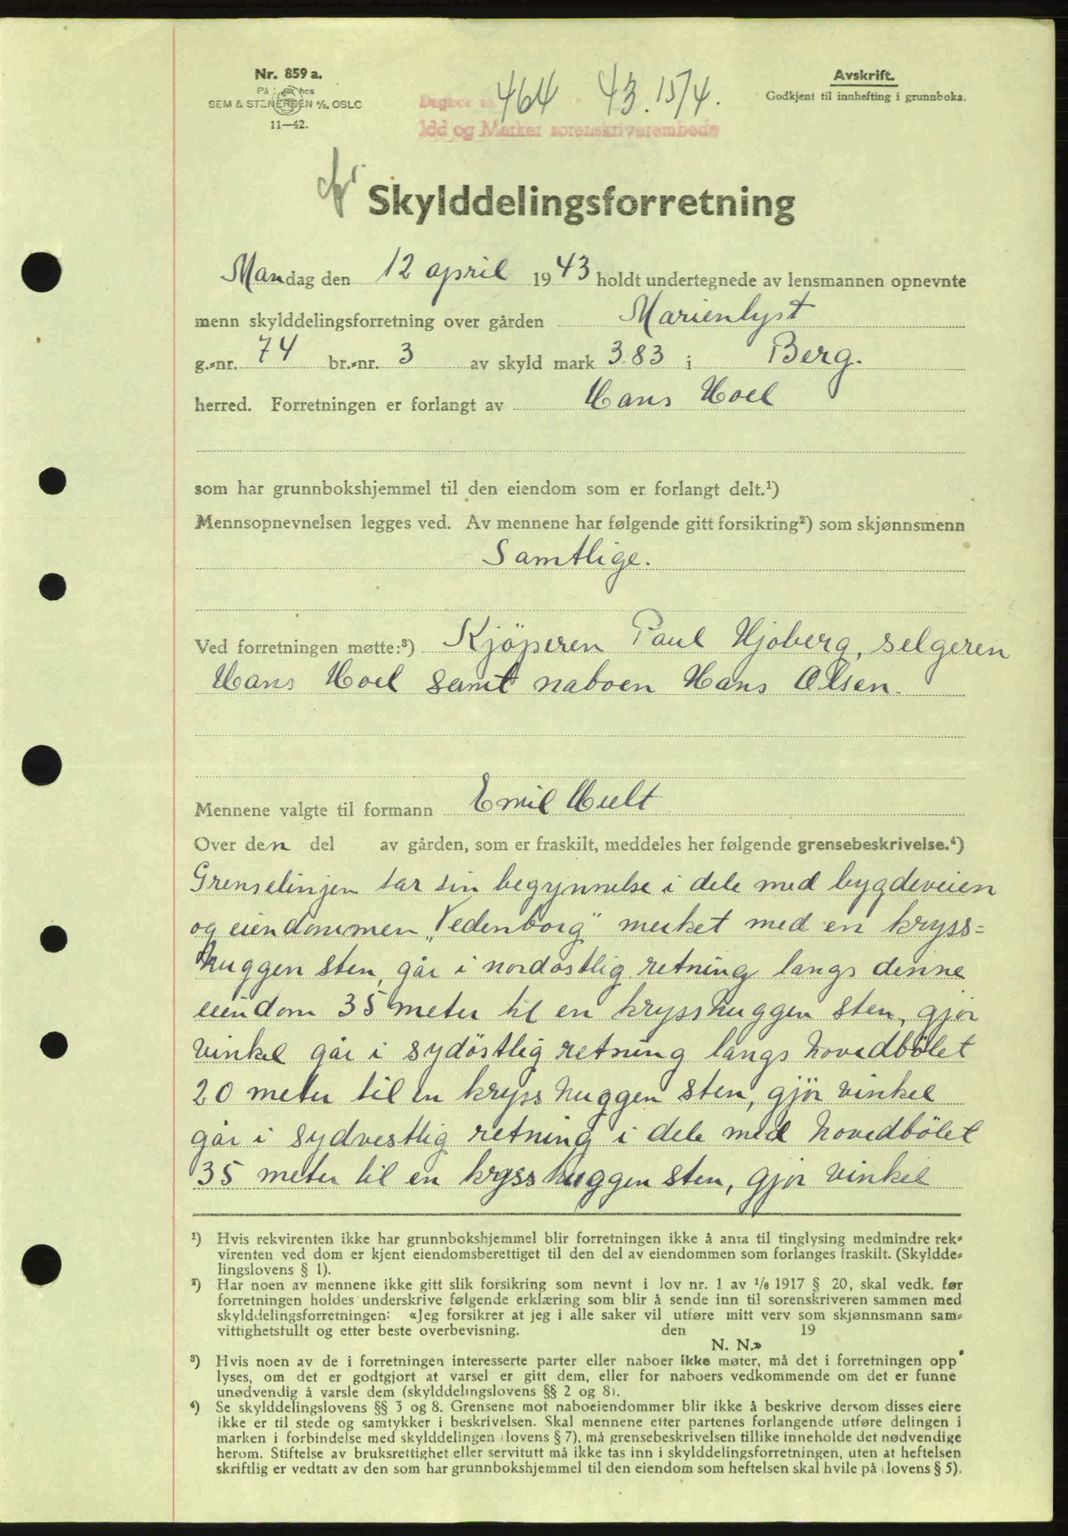 Nr. 859 a.
SEM & STENERSEN A/S, OSLO
11—42.
Dagbok nr. 464 43. 15/4.
Idd og Marker sorenskriverembede
Avskrift.
Godkjent til innhefting i grunnboka.
Skylddelingsforretning
Mandag den 12 april 1943 holdt undertegnede av lensmannen opnevnte
menn skylddelingsforretning over gården Marienlyst
g.-nr. 74 br.-nr. 3 av skyld mark 3.83 i Berg.
herred. Forretningen er forlangt av Hans Hoel
som har grunnbokshjemmel til den eiendom som er forlangt delt.¹)
Mennsopnevnelsen legges ved. Av mennene har følgende gitt forsikring²) som skjønnsmenn
Samtlige.
Ved forretningen møtte:³) Kjöperen Paul Hjoberg, selgeren
Hans Hoel samt naboen Hans Olsen.
Mennene valgte til formann Emil Hult
Over den del av gården, som er fraskilt, meddeles her følgende grensebeskrivelse.⁴)
Grenselinjen tar sin begynnelse i dele med bygdeveien
og eiendommen „Vedenborg" merket med en kryss=
huggen sten, går i nordöstlig retning langs denne
eiendom 35 meter til en krysshuggen sten, gjör
vinkel går i sydöstlig retning langs hovedbölet
20 meter til en kryss huggen sten, gjör vinkel
går i sydvestlig retning i dele med hovedbölet
35 meter til en krysshuggen sten, gjör vinkel
¹) Hvis rekvirenten ikke har grunnbokshjemmel blir forretningen ikke å anta til tinglysing medmindre rek-
virenten ved dom er kjent eiendomsberettiget til den del av eiendommen som forlanges fraskilt. (Skyldde-
lingslovens § 1).
²) Har noen av mennene ikke gitt slik forsikring som nevnt i lov nr. 1 av 1/6 1917 § 20, skal vedk. før
forretningen holdes underskrive følgende erklæring som blir å sende inn til sorenskriveren sammen med
skylddelingsforretningen: «Jeg forsikrer at jeg i alle saker vil utføre mitt verv som skjønnsmann sam-
vittighetsfullt og etter beste overbevisning. den 19
N. N.»
³) Hvis noen av de i forretningen interesserte parter eller naboer ikke møter, må det i forretningen opp
lyses, om det er godtgjort at varsel er gitt dem, eller for naboers vedkommende om det er funne
unødvendig å varsle dem (skylddelingslovens §§ 2 og 8).
⁴) Se skylddelingslovens §§ 3 og 8. Grensene mot naboeiendommer blir ikke å beskrive dersom disses eiere
ikke er til stede og samtykker i beskrivelsen. Skal mennene etter partenes forlangende utføre delingen i
marken i forbindelse med skylddelingen (lovens § 7), må grensebeskrivelsen tillike inneholde det nødvendige
herom. Stiftelse av bruksrettighet eller servitutt må ikke tas inn i skylddelingsforretningen, uten at heftelsen
skriftlig er vedtatt av den som har grunnbokshjemmel til den eiendom som heftelsen skal hvile på (lovens § 5).